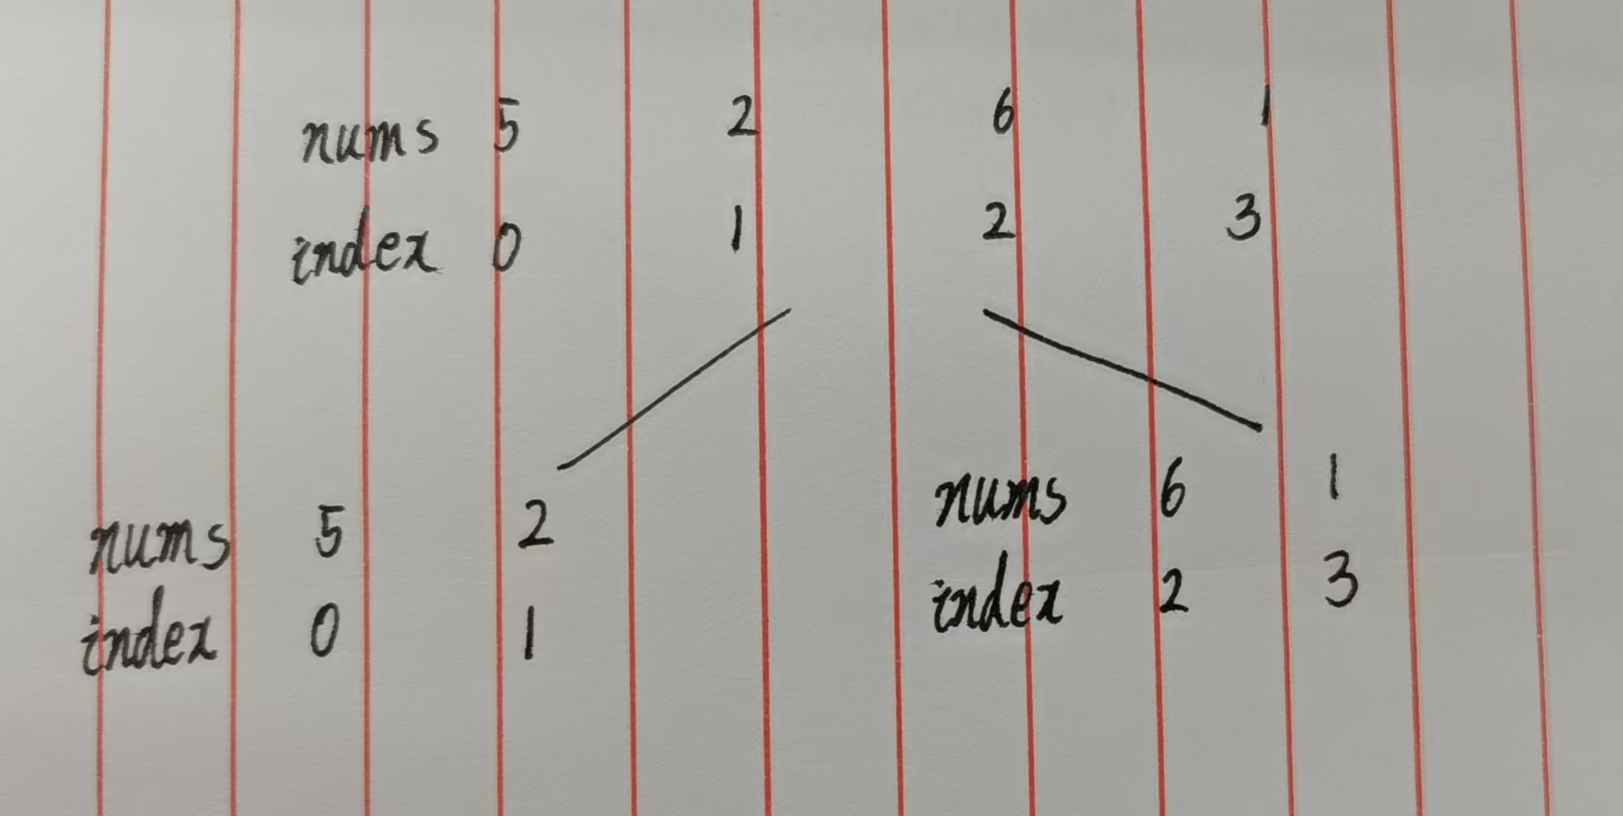 nums 5 2 6 1
index 0 1 2 3
nums 5 2
index 0 1
nums 6 1
index 2 3